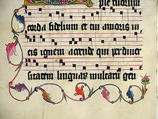 ple tuorum
corda fidelium et tui amoris in
eis ignem accende qui per diuer
sitatem linguarum multarum gen